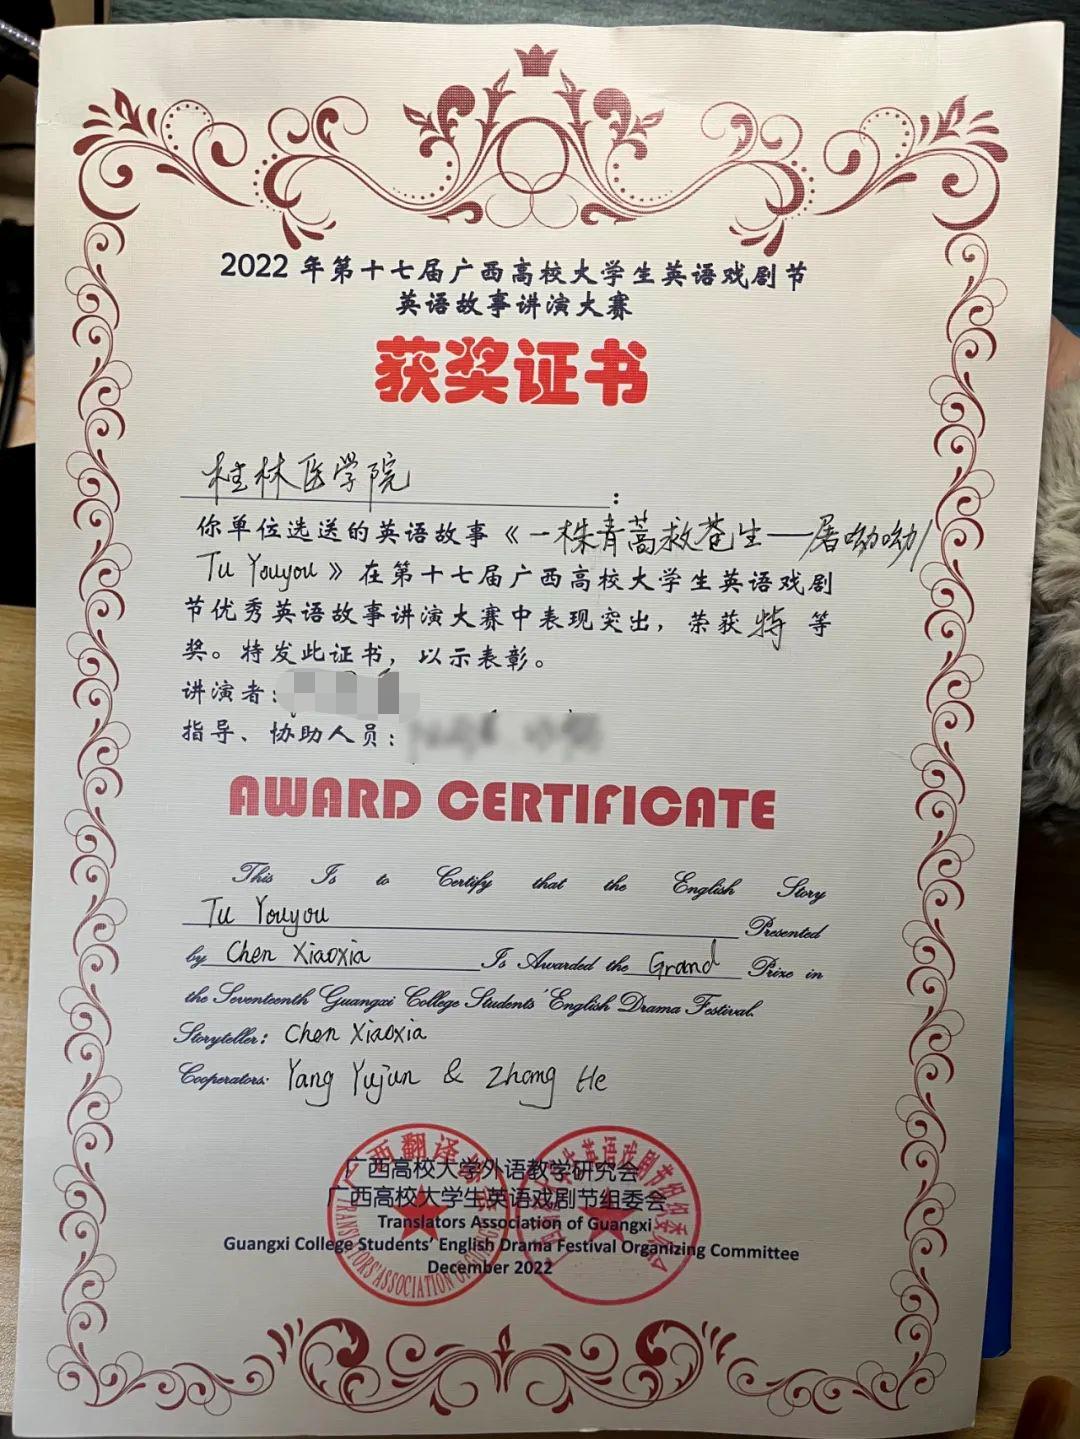 2022 年第十七届广西高校大学生英语戏剧节
英语故事讲演大赛
获奖证书
桂林医学院:
你单位选送的英语故事《一株青蒿救苍生——屠呦呦/
Tu Youyou》在第十七届广西高校大学生英语戏剧
节优秀英语故事讲演大赛中表现突出，荣获特等
奖。特发此证书，以示表彰。
讲演者:
指导、协助人员:
AWARD CERTIFICATE
This Is to Certify that the English Story
Tu Youyou Presented
by Chen Xiaoxia Is Awarded the Grand Prize in
the Seventeenth Guangxi College Students' English Drama Festival.
Storyteller: Chen Xiaoxia
Cooperators: Yang Yujun & Zhong He
广西高校大学外语教学研究会
广西高校大学生英语戏剧节组委会
Translators Association of Guangxi
Guangxi College Students' English Drama Festival Organizing Committee
December 2022